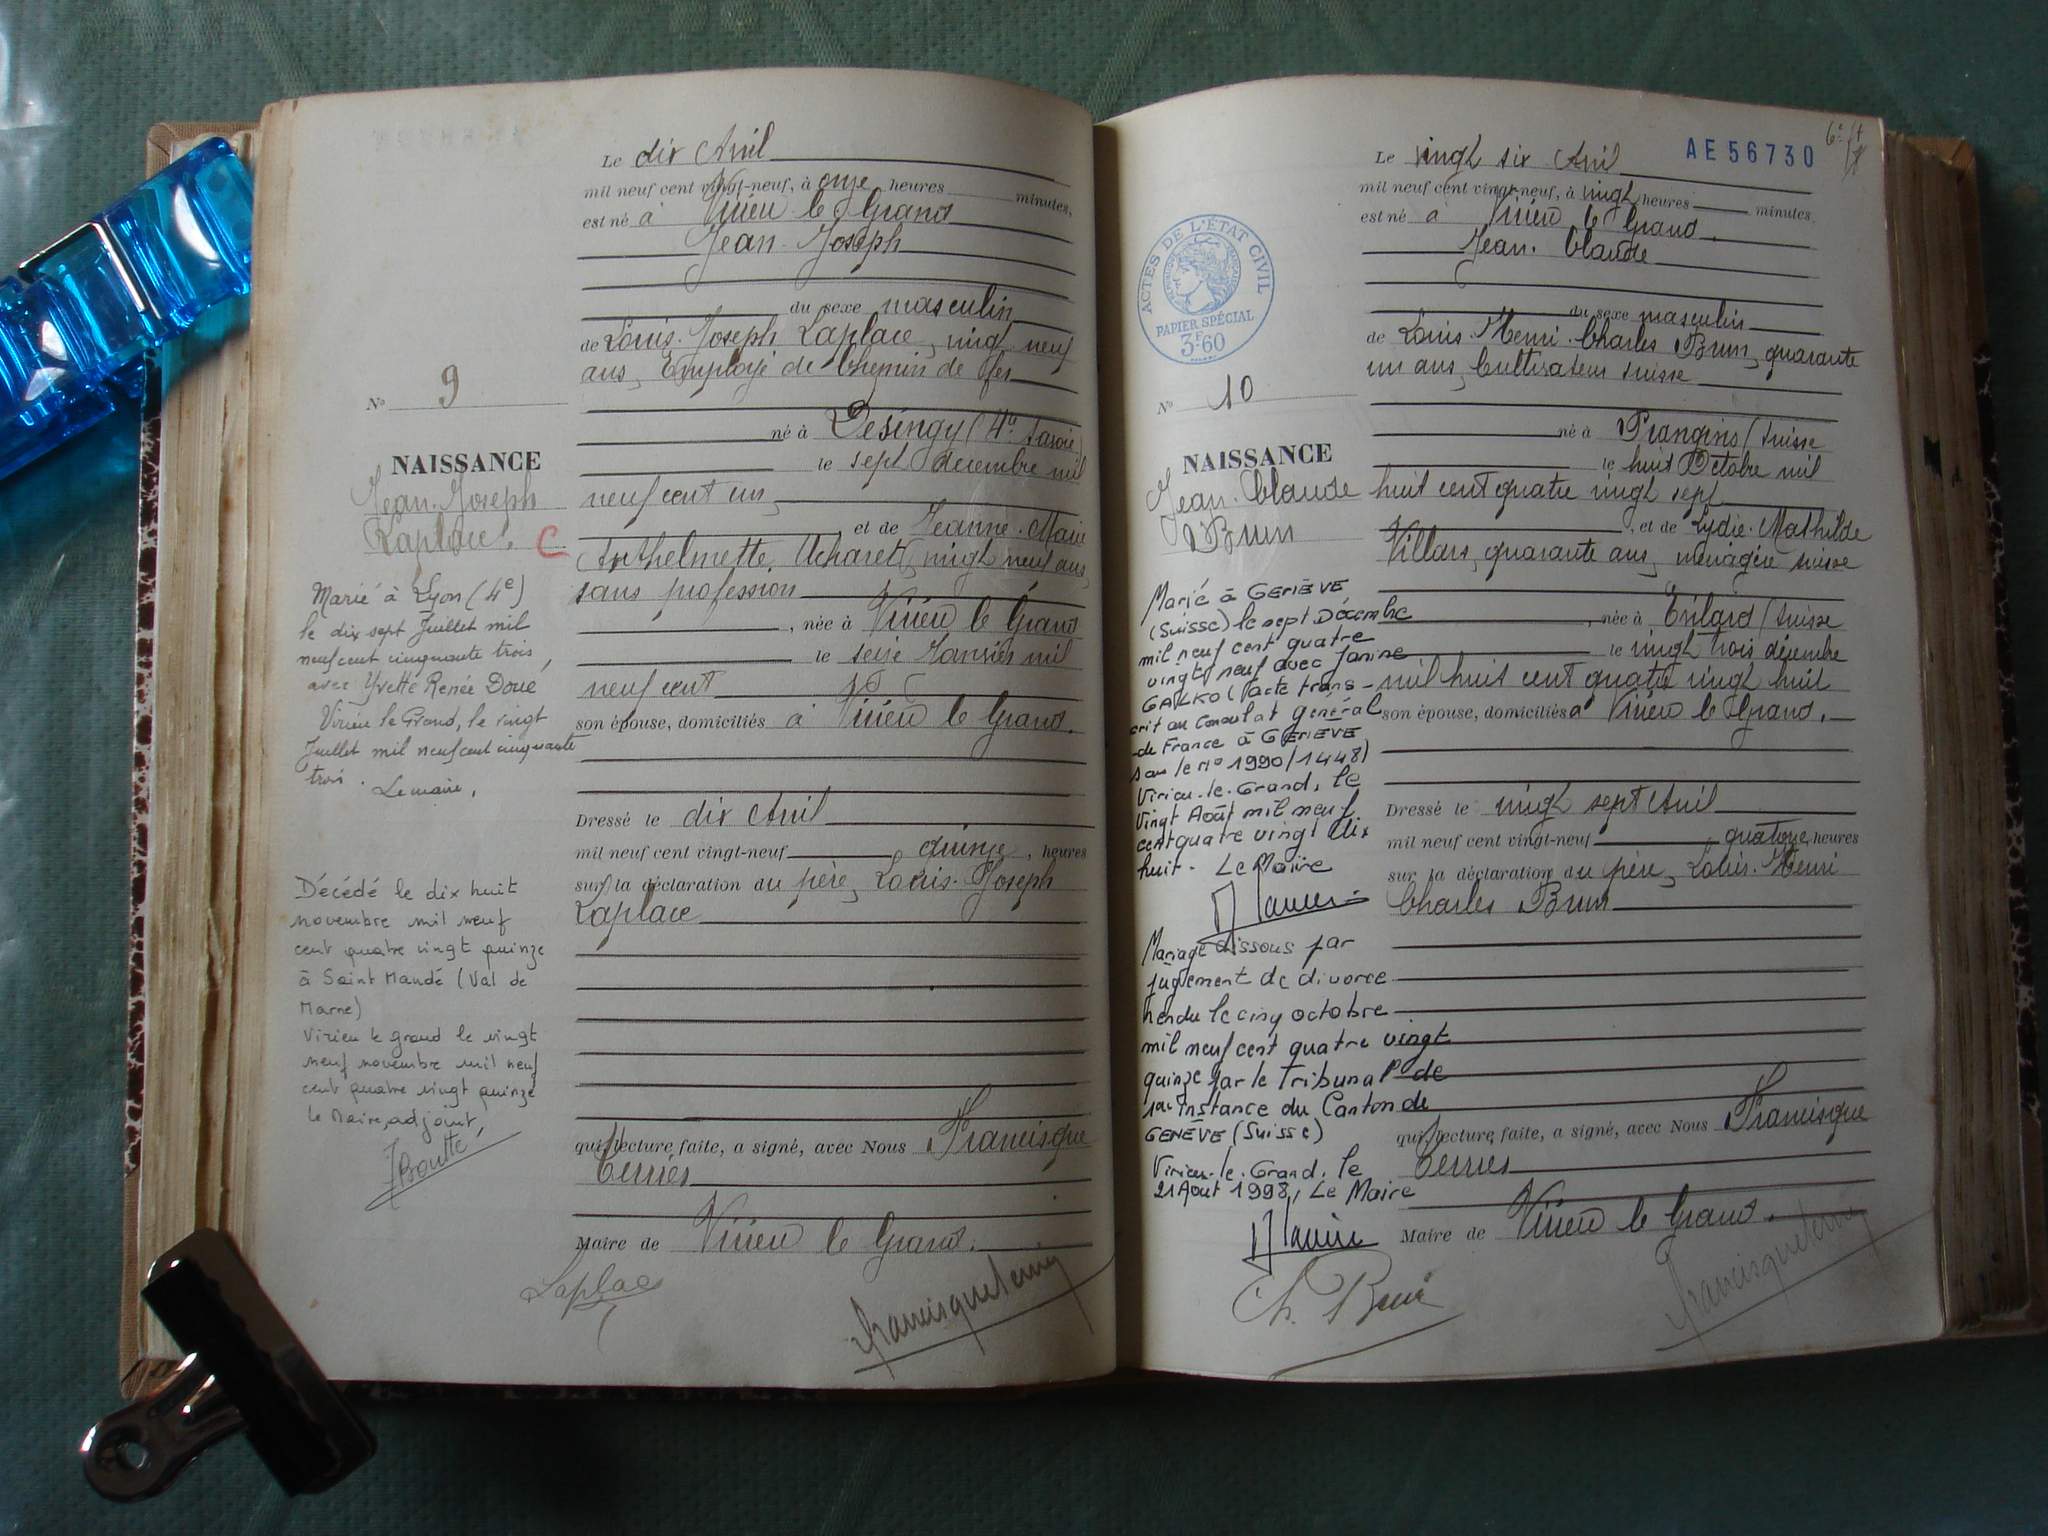 Le dix Avril
mil neuf cent vingt-neuf, à onze heures minutes,
est né à Virieu le Grand
Jean-Joseph
du sexe masculin
de Louis-Joseph Laplace, vingt neuf
ans, Employé de Chemin de fer
né à Desingy (Hte Savoie)
le sept décembre mil
neuf cent un,
et de Jeanne-Marie
Anthelmette, vingt neuf ans,
sans profession
, née à Virieu le Grand
le seize Janvier mil
neuf cent
son épouse, domiciliés à Virieu le Grand.
Dressé le dix Avril
mil neuf cent vingt-neuf quinze, heures
sur la déclaration du père, Louis-Joseph
Laplace
qui, lecture faite, a signé, avec Nous Francisque
Terrier
Maire de Virieu le Grand.
Laplace
No 9
NAISSANCE
Jean-Joseph
Laplace. C
Marié à Lyon (4e)
le dix sept Juillet mil
neuf cent cinquante trois,
avec Yvette Renée Doue
Virieu le Grand, le vingt
Juillet mil neuf cent cinquante
trois. Le maire,
Décédé le dix huit
novembre mil neuf
cent quatre vingt quinze
à Saint Mandé (Val de
Marne)
Virieu le grand le vingt
neuf novembre mil neuf
cent quatre vingt quinze
le Maire, adjoint,
AE 56730
Le vingt six Avril
mil neuf cent vingt-neuf, à vingt heures minutes
est né à Virieu le Grand.
Jean-Claude
du sexe masculin
de Louis-Henri-Charles Brun, quarante
un ans, Cultivateur suisse
né à Prangins (Suisse
le huit Octobre mil
huit cent quatre vingt sept
, et de Lydie-Mathilde
Villars, quarante ans, ménagère suisse
, née à Evilard (Suisse
le vingt trois décembre
mil huit cent quatre vingt huit
son épouse, domiciliés à Virieu le Grand.
Dressé le vingt sept Avril
mil neuf cent vingt-neuf quatorze heures
sur la déclaration du père, Louis-Henri
Charles Brun
qui, lecture faite, a signé, avec Nous Francisque
Terrier
Maire de Virieu le Grand.
Ch. Brun
ACTES DE L'ÉTAT CIVIL
PAPIER SPÉCIAL
3F.60
No 10
NAISSANCE
Jean-Claude
Brun
Marié à GENÈVE
(Suisse) le sept Décembre
mil neuf cent quatre
vingt neuf avec Janine
GALKO (acte trans-
crit au Consulat général
de France à GENÈVE
sous le No 1990/1448)
Virieu-le-Grand, le
Vingt Août mil neuf
cent quatre vingt dix
huit. Le Maire
Mariage dissous par
jugement de divorce
rendu le cinq octobre
mil neuf cent quatre vingt
quinze par le Tribunal de
1ère instance du Canton de
GENÈVE (Suisse)
Virieu-le-Grand, le
21 Août 1998, Le Maire